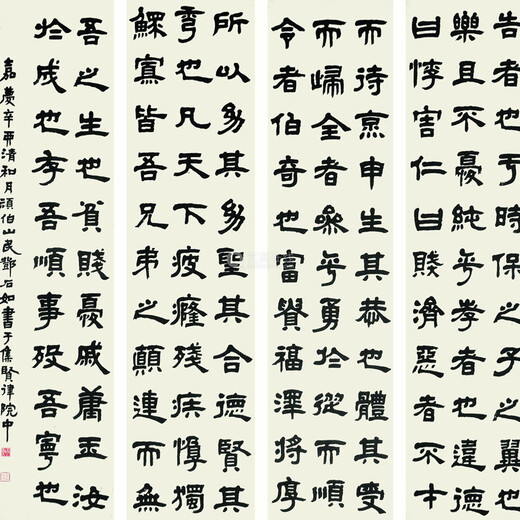 告者也于時保之子之翼也
樂且不憂純乎孝者也違德
曰悖害仁曰賊濟惡者不才
而待烹申生其恭也體其受
而歸全者參乎勇於從而順
令者伯奇也富貴福澤將厚
所以為其為聖其合德賢其
秀也凡天下疲癃殘疾惸獨
鰥寡皆吾兄弟之顛連而無
吾之生也貧賤憂戚庸玉汝
於成也存吾順事歿吾寧也
嘉慶辛酉清和月頑伯山民鄧石如書于集賢律院中